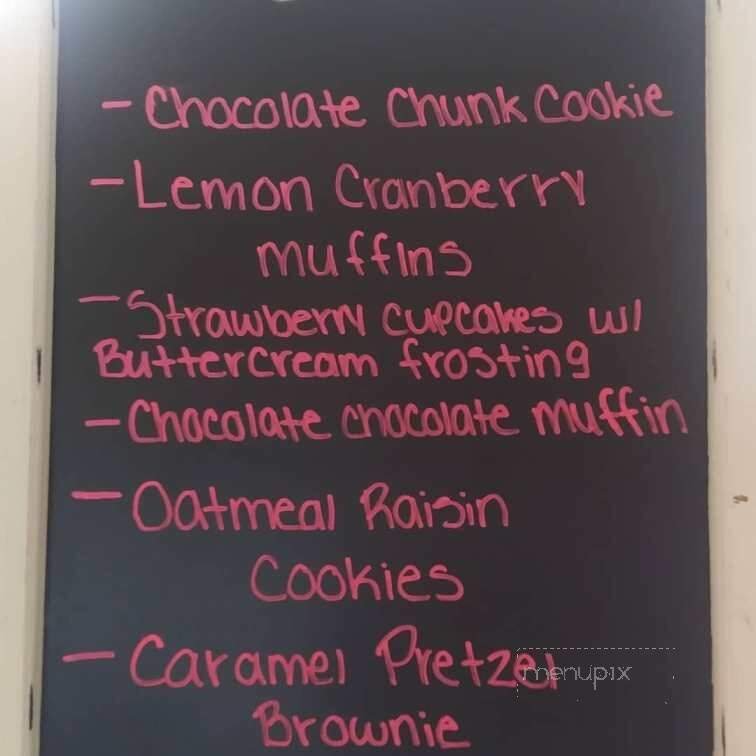 - Chocolate Chunk Cookie
- Lemon Cranberry
muffins
- Strawberry cupcakes w/
Buttercream frosting
- Chocolate chocolate muffin
- Oatmeal Raisin
Cookies
- Caramel Pretzel
menupix
Brownie